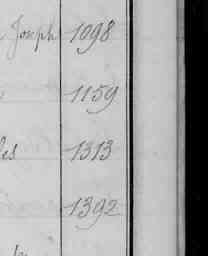 Joseph 1098
1159
les 1313
1392